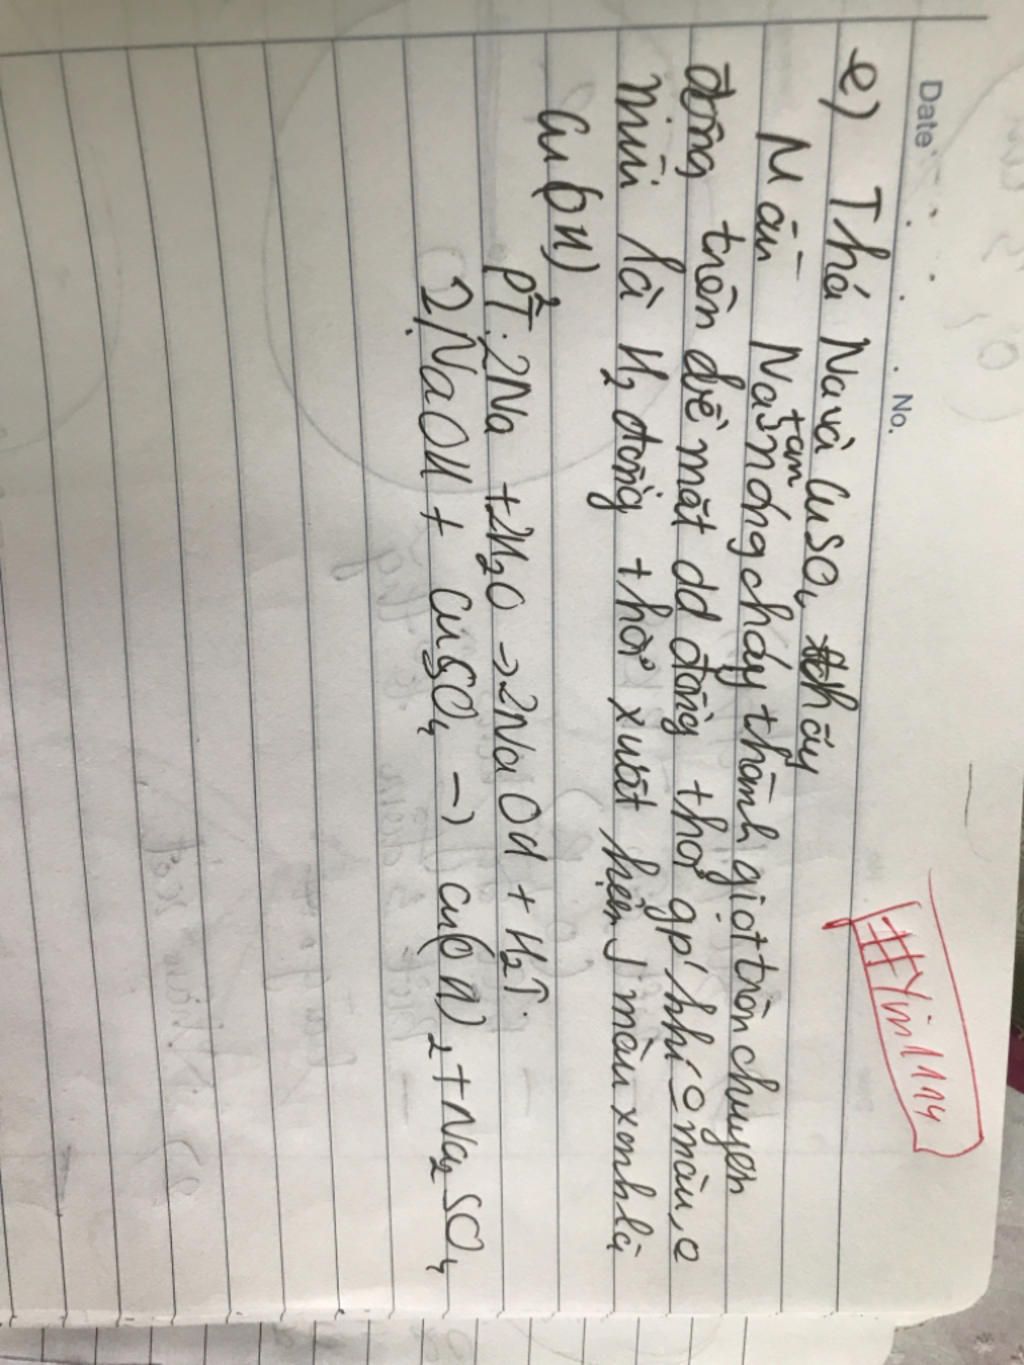 Date No.
#Yin1114
e) Thả Na và CuSO4 thấy
Mẩu Na tan nóng chảy thành giọt tròn chuyển
động trên bề mặt dd đồng thời gp' khí 0 màu, 0
mùi là H2 đồng thời xuất hiện ↓ màu xanh là
Cu(OH)2
PT: 2Na + 2H2O → 2NaOH + H2↑.
2NaOH + CuSO4 → Cu(OH)2 + Na2SO4